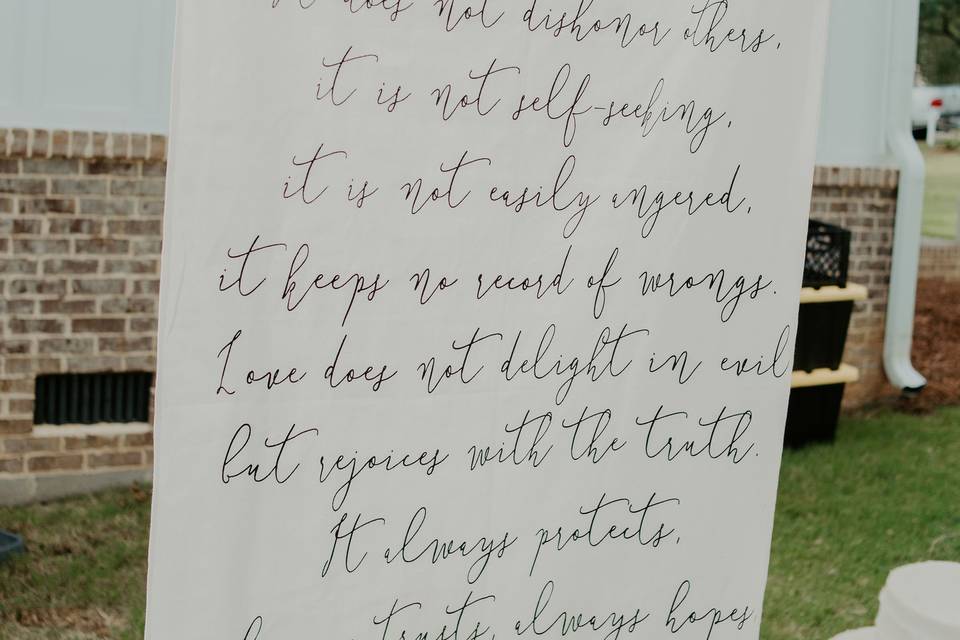 It does not dishonor others,
it is not self-seeking,
it is not easily angered,
it keeps no record of wrongs.
Love does not delight in evil
but rejoices with the truth.
It always protects,
trusts, always hopes